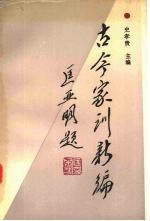 史孝贵 主编
古今家训新编
匡亚明题